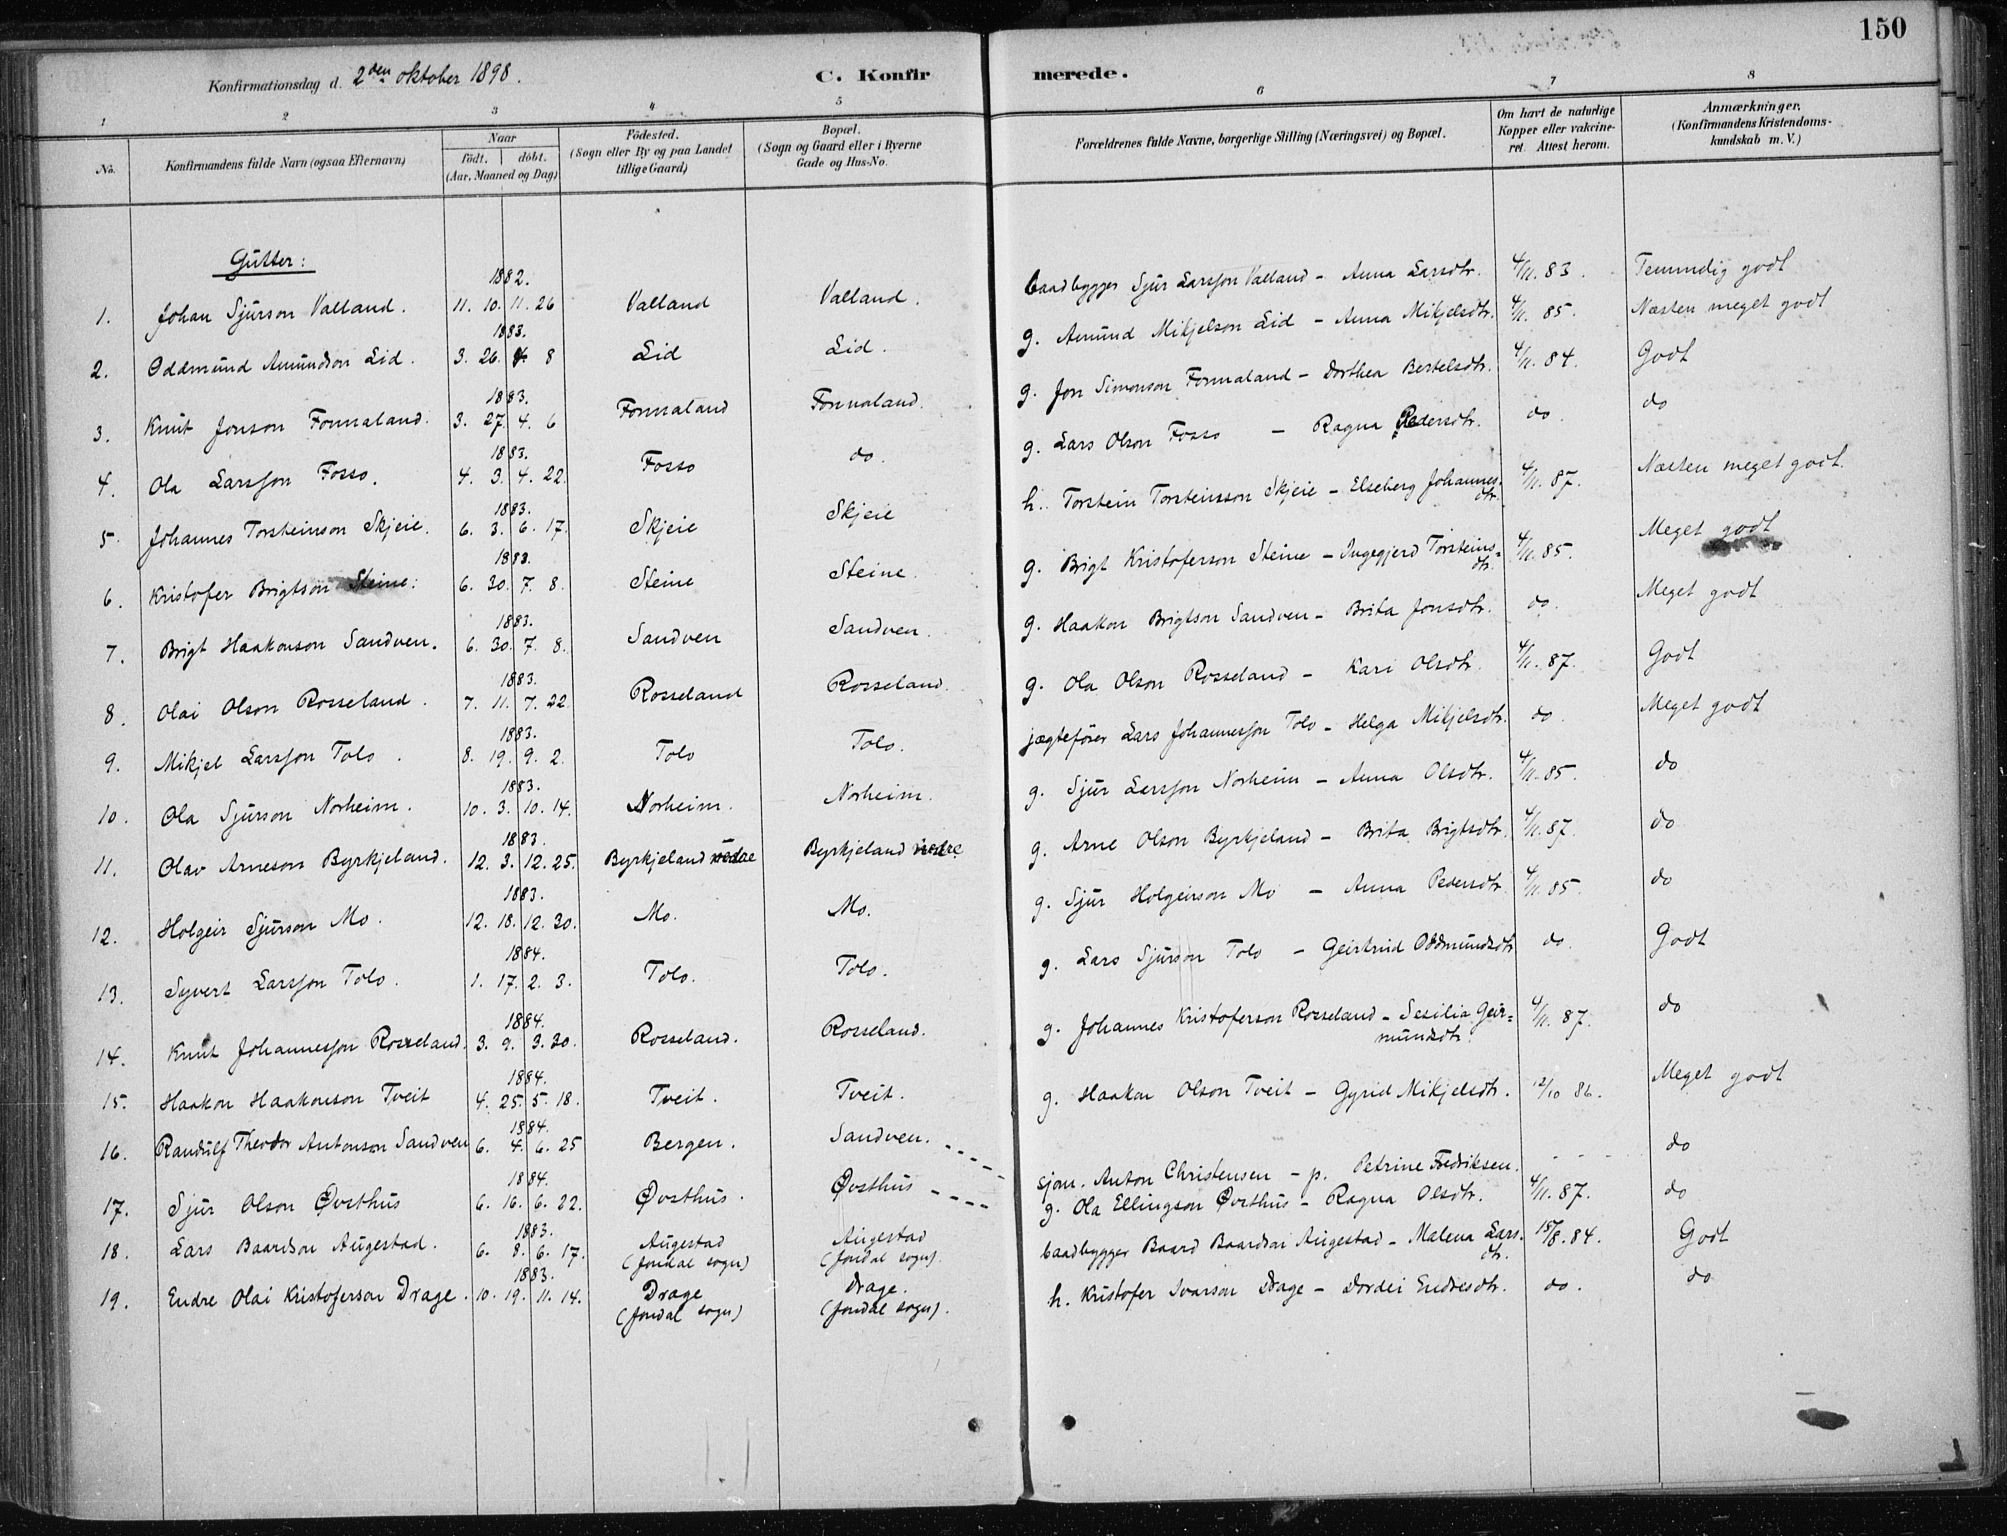 150
Konfirmationsdag d. 2den oktober 1898.
C. Konfirmerede.
1 2 3 4 5 6 7 8
No. Konfirmandens fulde Navn (ogsaa Efternavn) Naar födt. döbt. (Aar, Maaned og Dag) Födested. (Sogn eller By og paa Landet tillige Gaard) Bopæl. (Sogn og Gaard eller i Byerne Gade og Hus-No. Forældrenes fulde Navne, borgerlige Stilling (Næringsvei) og Bopæl. Om havt de naturlige Kopper eller vakcineret. Attest herom. Anmærkninger. (Konfirmandens Kristendomskundskab m. V.)
Gutter:
1882.
1. Johan Sjurson Valland. 11. 10. 11. 26 Valland Valland. baadbygger Sjur Larsson Valland - Anna Larsdtr. 4/11. 83. Temmelig godt
1883.
2. Oddmund Amundson Lid. 3. 26. 4. 8 Lid Lid. g. Amund Mikjelson Lid - Anna Mikjelsdtr. 4/11. 85. Næsten meget godt
1883.
3. Knut Jonson Fonnaland. 3. 27. 4. 6 Fonnaland Fonnaland. g. Jon Simonson Fonnaland - Dorthea Bertelsdtr. 4/11. 84. Godt
1883.
4. Ola Larsson Fosso. 4. 3. 4. 22. Fosso do. g. Lars Olson Fosso - Ragna Pedersdtr. do do
1883.
5. Johannes Torsteinson Skjeie. 6. 3. 6. 17. Skjeie Skjeie h. Torstein Torsteinsson Skjeie - Elseberg Johannesdtr. 4/11. 87. Næsten meget godt.
1883.
6. Kristofer Brigtson Steine. 6. 30. 7. 8. Steine Steine. g. Brigt Kristoferson Steine - Ingegjerd Torsteinsdtr. 4/11. 85. Meget godt
1883.
7. Brigt Haakonson Sandven. 6. 30. 7. 8. Sandven Sandven. g. Haakon Brigtson Sandven - Brita Jonsdtr. do. Meget godt
1883.
8. Olai Olson Rosseland. 7. 11. 7. 22 Rosseland Rosseland. g. Ola Olson Rosseland - Kari Olsdtr. 4/11. 87. Godt
1883.
9. Mikjel Larsson Tolo. 8. 19. 9. 2. Tolo Tolo. jægtefører Lars Johannesson Tolo - Helga Mikjelsdtr. do. Meget godt
1883.
10. Ola Sjurson Norheim. 10. 3. 10. 14. Norheim. Norheim. g. Sjur Larsson Norheim - Anna Olsdtr. 4/11. 85. do
1883.
11. Olav Arneson Byrkjeland. 12. 3. 12. 25. Byrkjeland nedre Byrkjeland nedre g. Arne Olson Byrkjeland - Brita Brigtsdtr. 4/11. 87. do
1883.
12. Holgeir Sjurson Mo. 12. 18. 12. 30. Mo. Mo. g. Sjur Holgeirson Mo - Anna Pedersdtr. 4/11. 85. do
1884.
13. Syvert Larsson Tolo. 1. 17. 2. 3. Tolo. Tolo. g. Lars Sjurson Tolo - Geirtrud Oddmundsdtr do. Godt
1884.
14. Knut Johannesson Rosseland. 3. 9. 3. 30. Rosseland. Rosseland. g. Johannes Kristoferson Rosseland - Sesilia Geirmundsdtr. 4/11. 87. do
1884.
15. Haakon Haakonson Tveit 4. 25. 5. 18. Tveit. Tveit. g. Haakon Olson Tveit - Gyrid Mikjelsdtr. 12/10 86. Meget godt
1884.
16. Randulf Theodor Antonson Sandven 6. 4. 6. 25 Bergen. Sandven. sjøm. Anton Christensen - p. Petrine Fredriksen. do
1884.
17. Sjur Olson Øvsthus 6. 16. 6. 22. Øvsthus. Øvsthus g. Ola Ellingson Øvsthus - Ragna Olsdtr. 4/11. 87. do
1883.
18. Lars Baardson Augestad. 6. 8. 6. 17. Augestad (Jondal sogn) Augestad (Jondal sogn). baadbygger Baard Baardson Augestad - Malena Larsdtr. 15/8. 84. Godt
1883.
19. Endre Olai Kristoferson Drage. 10. 19. 11. 14. Drage (Jondal sogn) Drage. (Jondal sogn). h. Kristofer Ivarson Drage - Dordei Endresdtr. do. do